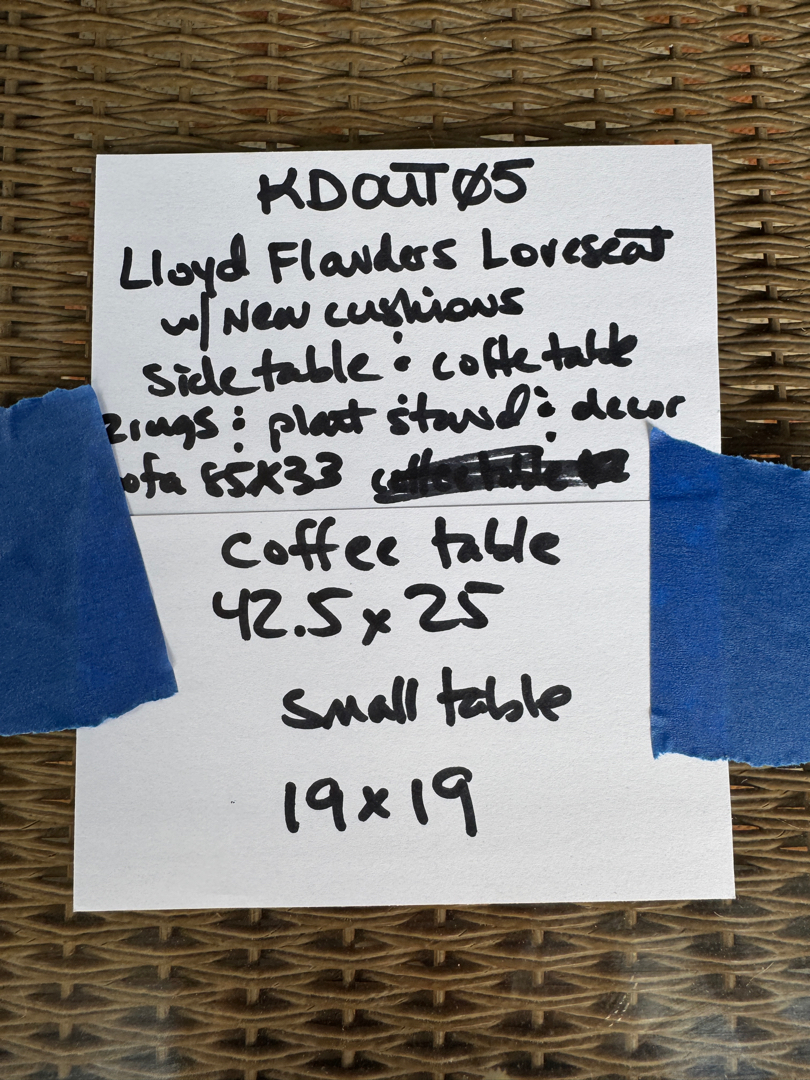 KDOUTØ5
Lloyd Flanders Loveseat
w/ New cushions
Side table : coffe table
2 rugs : plant stand : decor
ofa 85X33
Coffee table
42.5 x 25
Small table
19 x 19